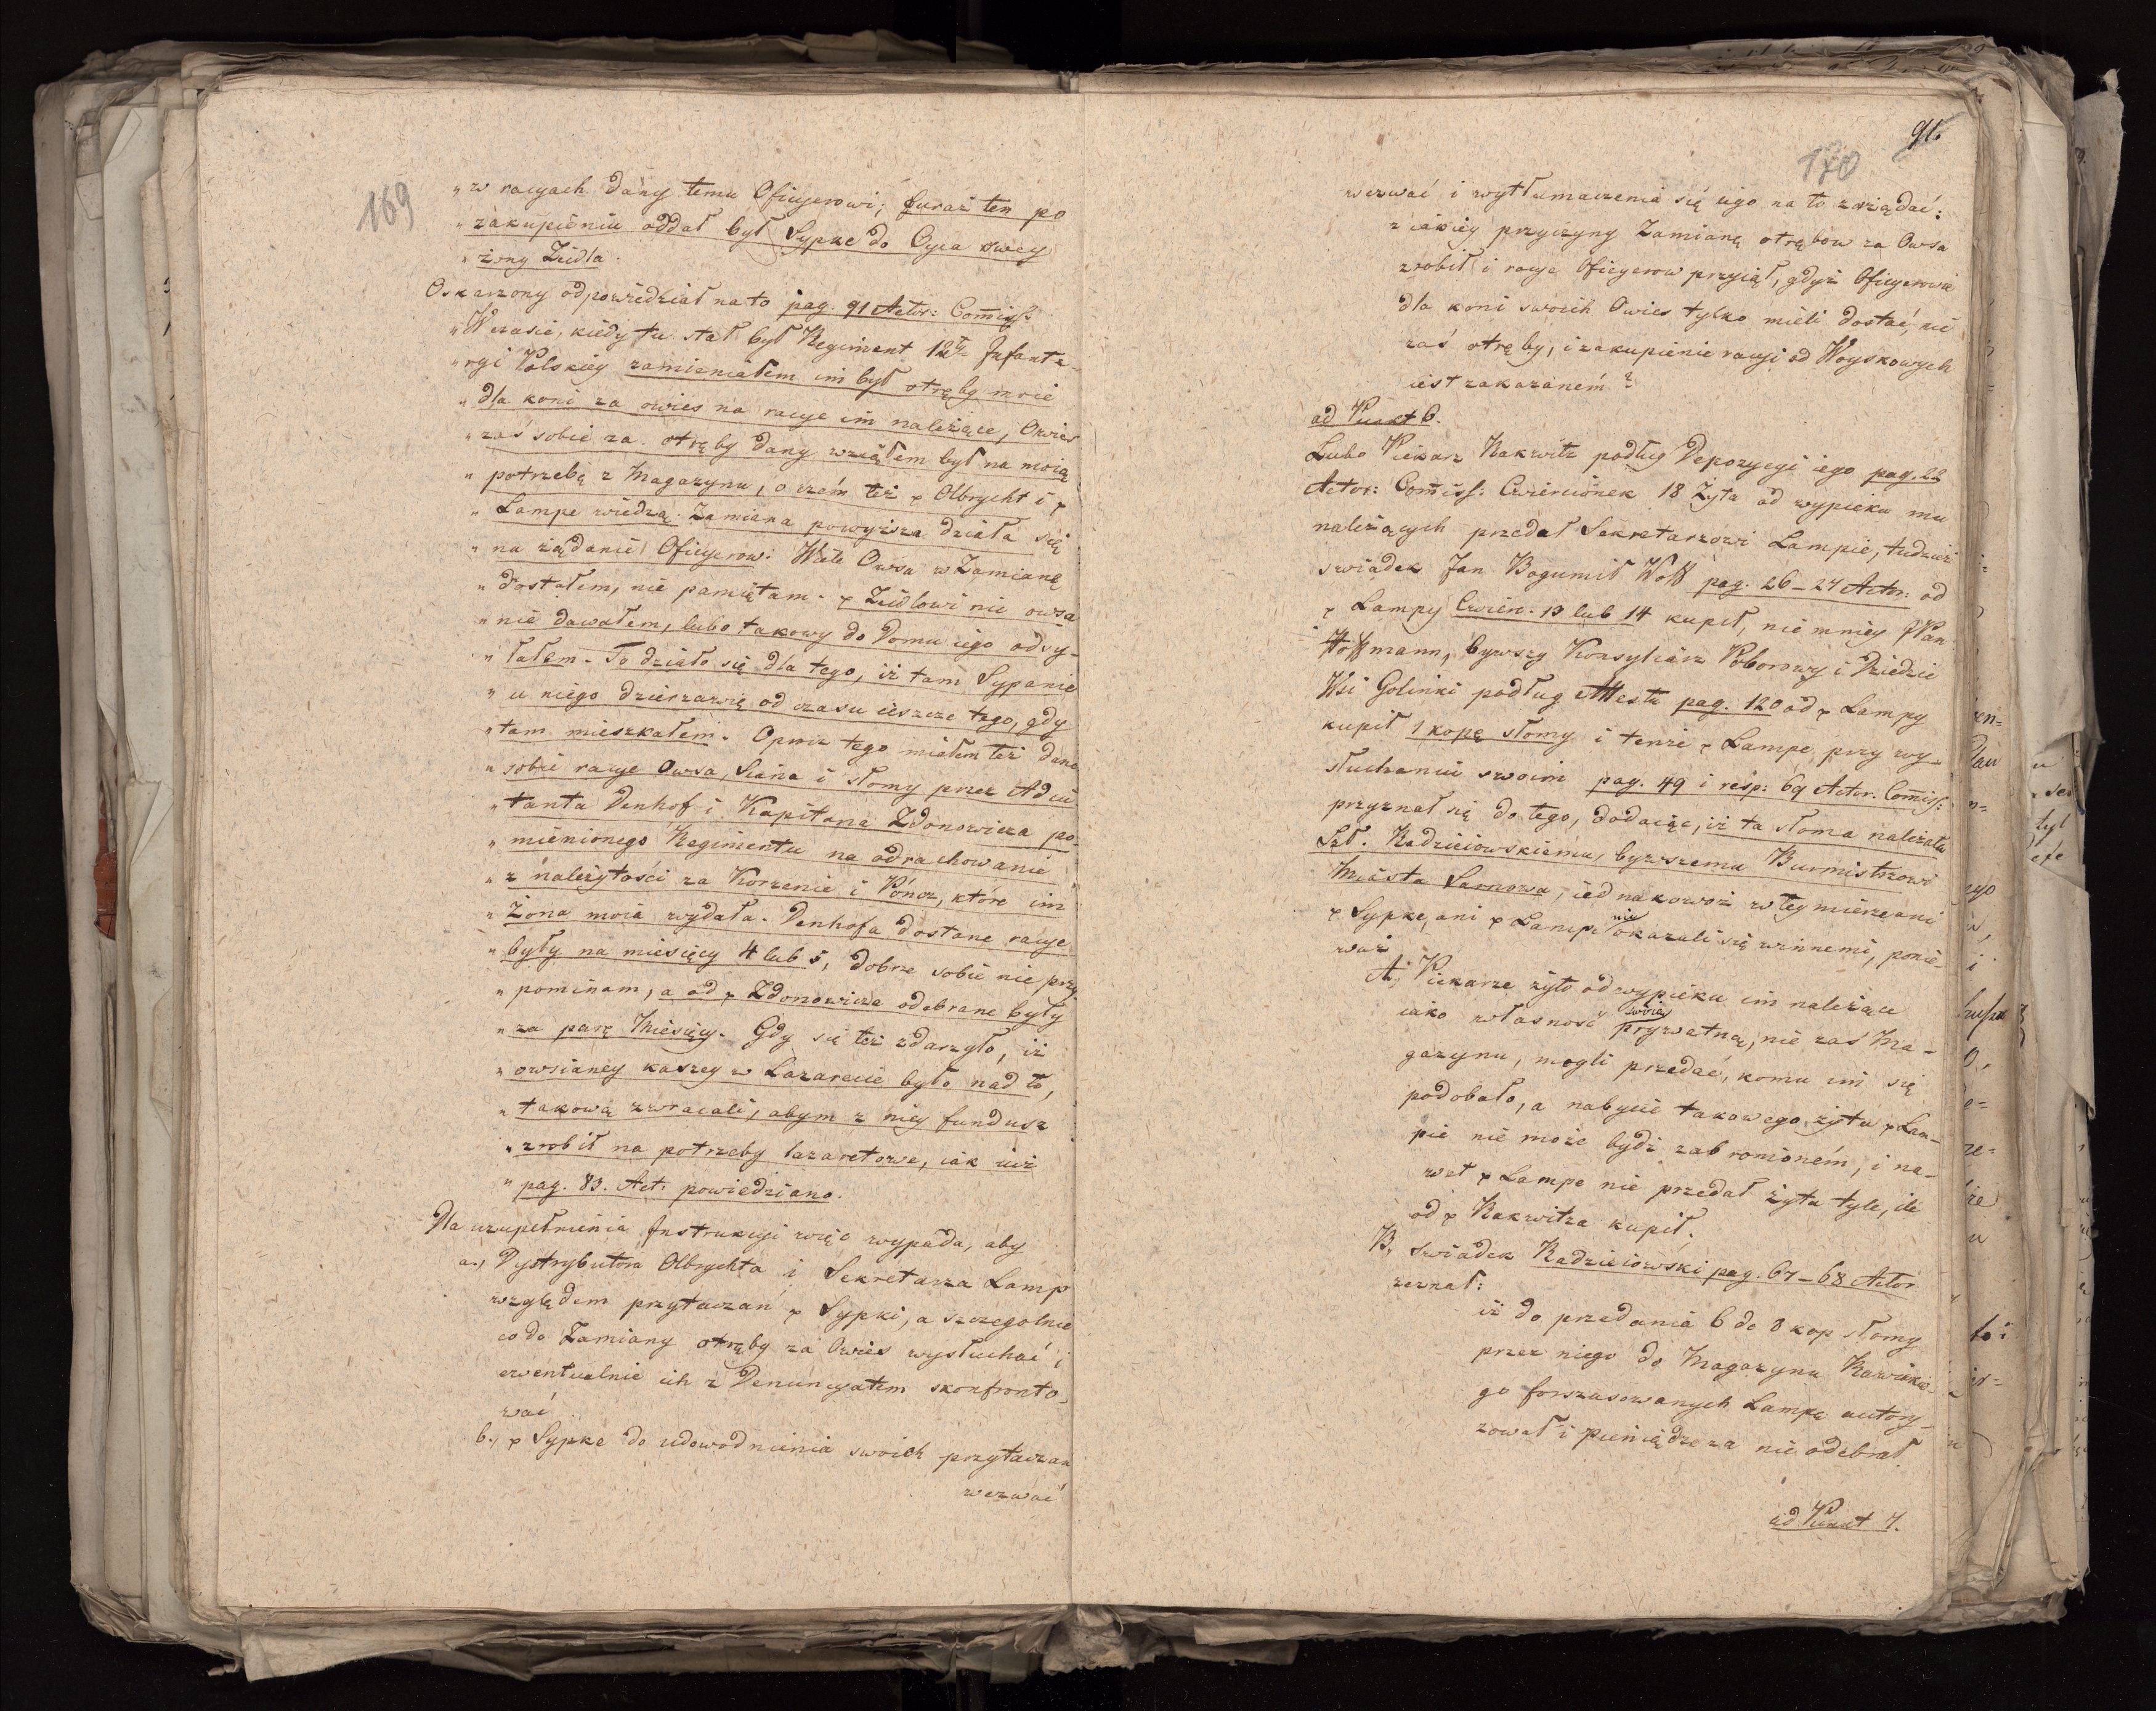 169
„ w racyach dany temu Oficyerowi; furaż ten po
„ zakupieniu oddał był Sypke do Oyca swey
„ żony Zeidla.
Oskarzony odpowiedział na to pag. 91 Actor: Comiss:
„ W czasie, kiedy tu stał był Regiment 12ty Infant-
„ ryi Polskiey zamieniałem im był otręby moie
„ dla koni za owies na racye im należące, Owies
„ zaś sobie za otręby dany wziąłem był na moią
„ potrzebę z Magazynu, o czém też p Olbrycht i p
„ Lampe wiedzą. Zamiana powyższa działa się
„ na żądanie Oficyerow. Wiele Owsa w Zamianę
„ dostałem, nie pamiętam. p Zeidlowi nic owsa
„ nie dawałem, lubo takowy do Domu iego odsy-
„ łałem. To działo się dla tego, iż tam Sypanie
„ u niego dzierzawię od czasu ieszcze tego, gdy
„ tam mieszkałem. Oprócz tego miałem też dane
„ sobie racye Owsa, Siana i słomy przez Adiu
„ tanta Denhof i Kapitana Zdonowicza po-
„ mienionego Regimentu na odrachowanie
„ z należytości za Korzenie i Poncz, które im
„ Żona moia wydała. Denhofa dostane racye
„ były na miesięcy 4 lub 5, dobrze sobie nie przy-
„ pominam, a od p Zdonowicza odebrane były
„ za parę Miesięcy. Gdy się też zdarzyło, iż
„ owsianey kaszey w Lazarecie było nad to,
„ takową zwracali, abym z niey fundusz
„ zrobił na potrzeby lazaretowe, iak iuż
„ pag. 83. Act: powiedziano.
Dla uzupełnienia Instrukcyi więc wypada, aby
a., Dystrybutora Olbrychta i Sekretarza Lamp
względem przytaczań p Sypki, a szczegolnie
co do Zamiany otręby za Owies wysłuchać i
ewentualnie ich z Denuncyatem skonfronto-
wać
b., p Sypke do udowodnienia swoich przytaczan
wezwać
91.
170
wezwać i wytłumaczenia się iego na to zażądać:
z iakiey przyczyny Zamianę otrębow za Owsa
zrobił i racye Oficyerow przyiął, gdyż Oficyerowie
dla koni swoich Owies tylko mieli dostać, nie
zaś otręby, i zakupienie racyi od Woyskowych
iest zakazaném?
ad Punkt 6.
Lubo Piekarz Rakwitz podług Depozycyi iego pag. 22
Actor: Comiss: Cwiercionek 18 Żyta od wypieku mu
należących przedał Sekretarzowi Lampie, tudzież
swiadek Jan Bogumił Wolff pag. 26–27 Actor: od
p Lampy Cwierc. 13 lub 14 kupił, nie mniey JPan
Hoffmann, bywszy Konsyliarz Poborowy i Dziedzic
Wsi Golinki podług Attestu pag. 120 od p Lampy
kupił 1 kopę słomy i tenże p Lampe przy wy-
słuchaniu swoim pag. 49 i resp: 69 Actor. Comiss:
przyznał się do tego, dodaiąc, iż ta słoma należała
Szl. Radzieiowskiemu, bywszemu Burmistrzowi
Miasta Sarnowa, iednakowoż w tey mierze ani
p Sypke, ani p Lampe nie okazali się winnemi, ponie-
waż
A., Piekarze żyto od wypieku im należące
iako własność swoią prywatną, nie zaś Ma-
gazynu, mogli przedać, komu im się
podobało, a nabycie takowego żyta p Lam-
pie nie może bydź zabronioném, i na-
wet p Lampe nie przedał żyta tyle, ile
od p Rakwitza kupił.
B, swiadek Radzieiowski pag. 67–68 Actor
zeznał:
iż do przedania 6 do 8 kop słomy
przez niego do Magazynu Rawickie-
go forszusowanych Lampę autory-
zował i pieniądze za nie odebrał.
ad Punkt 7.